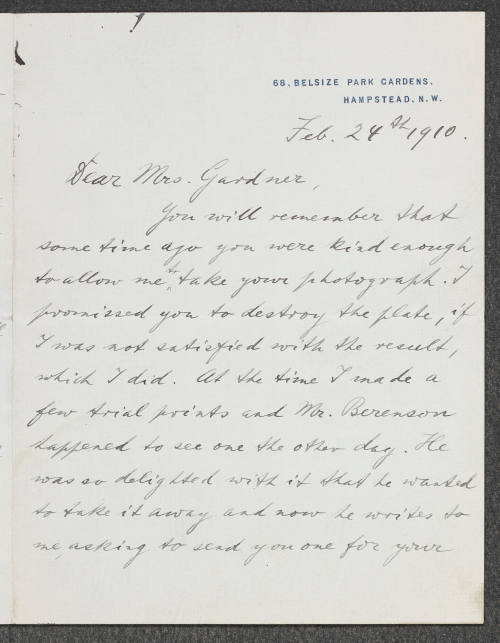 68, BELSIZE PARK GARDENS.
HAMPSTEAD, N.W.
Feb. 24th 1910.
Dear Mrs. Gardner,
You will remember that
some time ago you were kind enough
to allow me to take your photograph. I
promissed you to destroy the plate, if
I was not satisfied with the result,
which I did. At the time I made a
few trial prints and Mr. Berenson
happened to see one the other day. He
was so delighted with it that he wanted
to take it away and now he writes to
me, asking to send you one for your